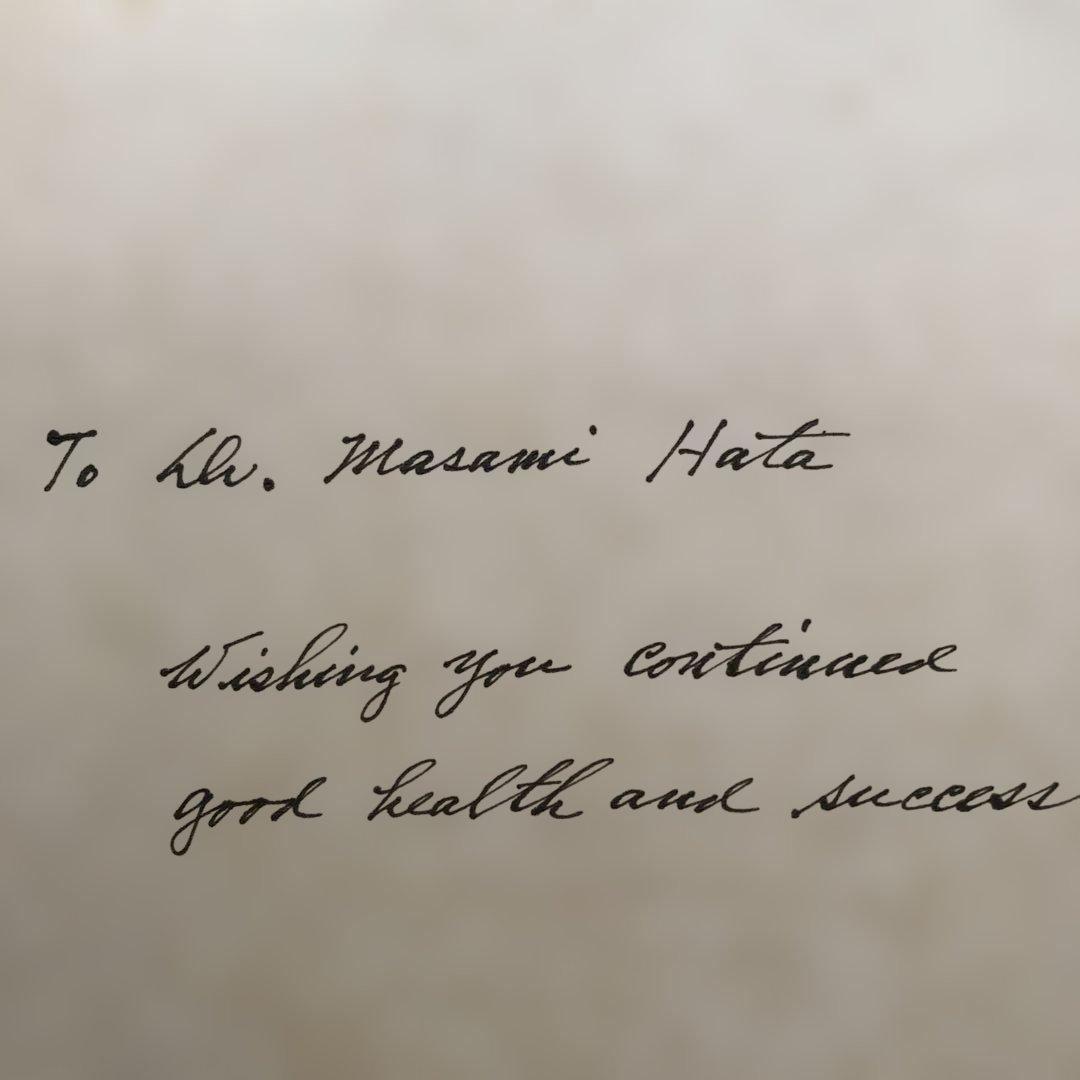 To Dr. Masami Hata
Wishing you continued
good health and success